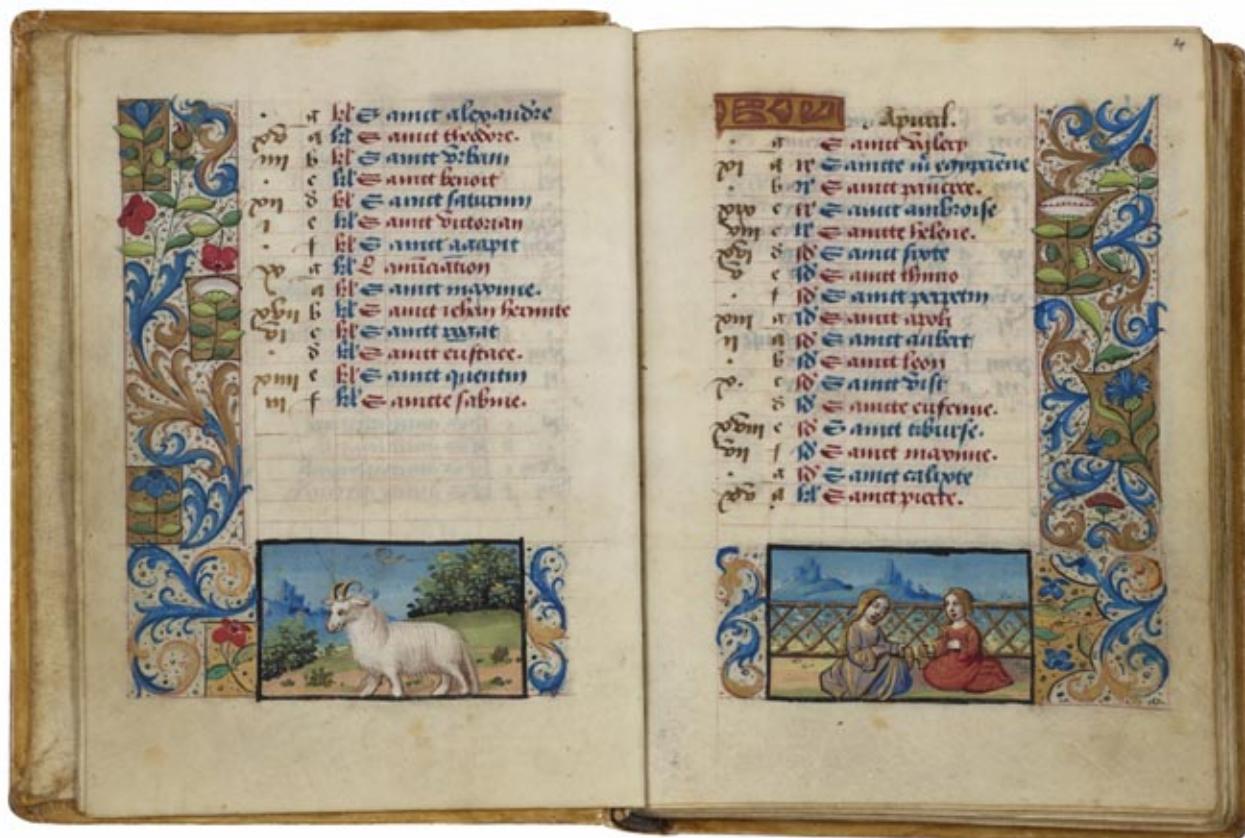 . a kl Sainct alexandre
xv a kl Sainct theodore.
iiii b kl Sainct Urbain
. c kl Sainct benoit
xii d kl Sainct saturnin
i e kl Sainct victorian
. f kl Sainct agapit
a kl Lanunciation
a kl Sainct maxime.
xvii b kl Sainct iehan hermite
vi c kl Sainct rogat
. d kl Sainct eustace.
xiiii e kl Sainct quentin
iii f kl Saincte sabine.
4
Apuril.
Sainct Valery
xi Saincte m egypciene
. b Sainct pancree.
c Sainct ambroise
Saincte helene.
d Sainct sixte
e Sainct
. f Sainct perpetin
xiii a id Sainct apoli
ii a id Sainct aubert
. b id Sainct leon
x. c id Sainct
d id Saincte eufemie.
xviii e id Sainct tiburse.
vii f id Sainct maxime.
. a id Sainct calixte
xv a kl Sainct pierre.